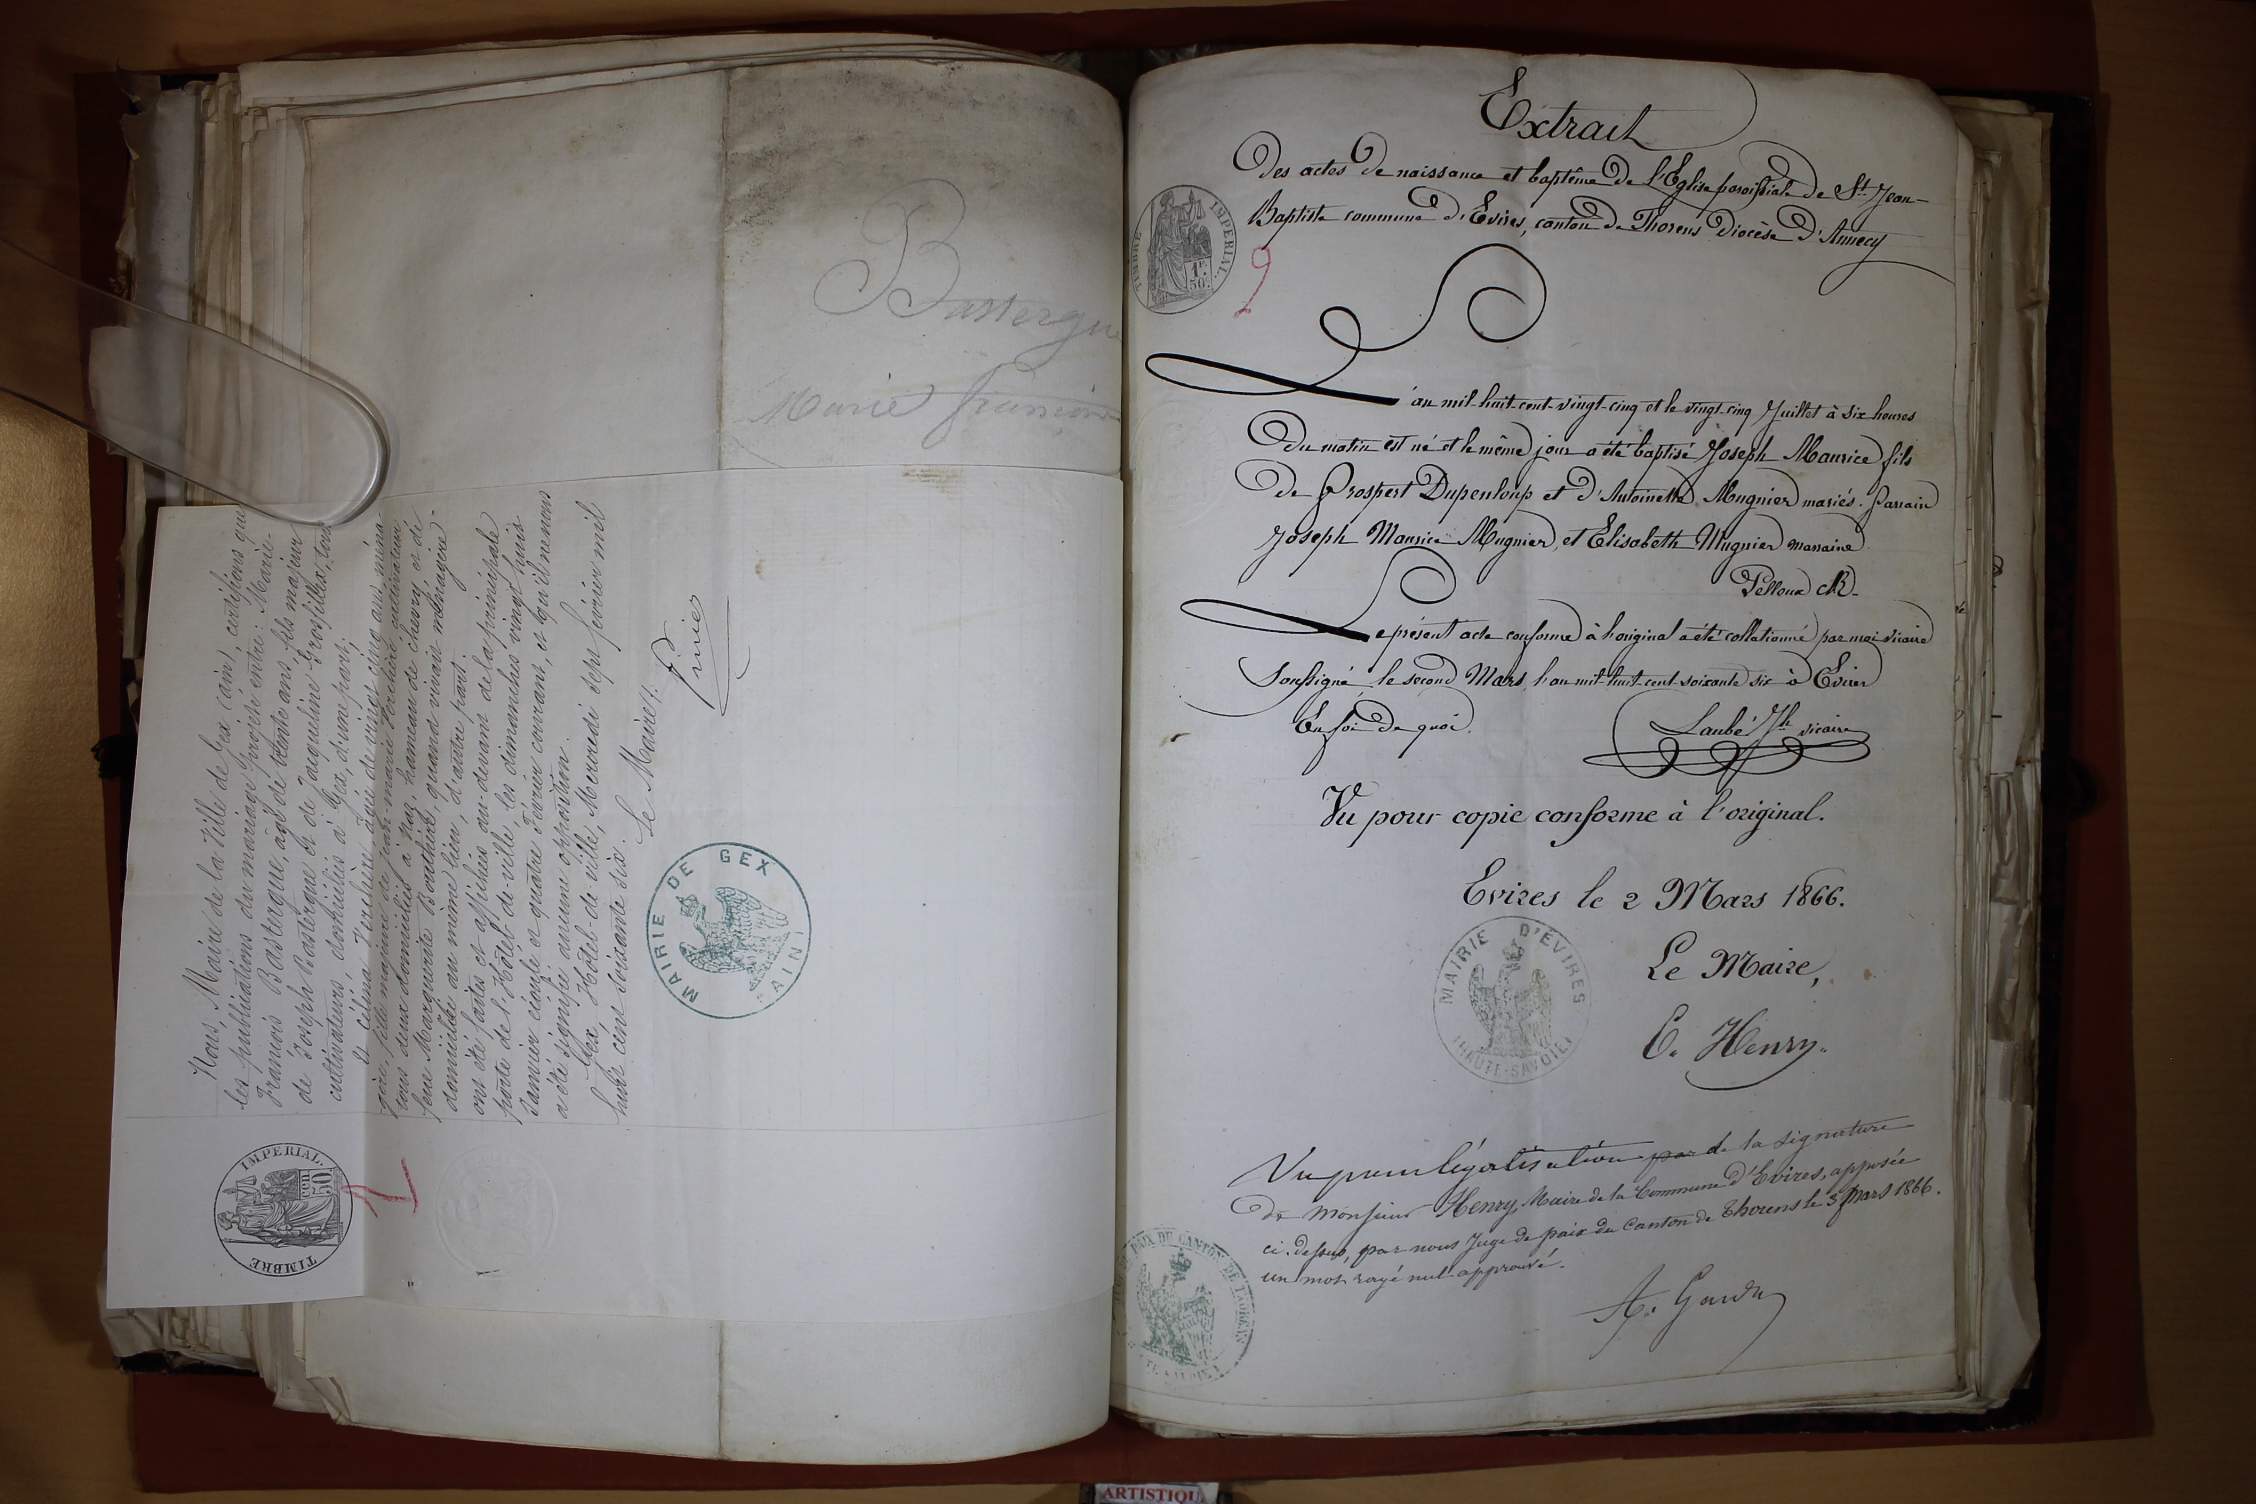 Bastergue
Marie françoi
Nous, Maire de la Ville de Gex (ain), certifions que
les publications du mariage projeté entre: Marie-
François Bastergue, agé de trente ans, fils majeur
de Joseph Bastergue et de Jacqueline Grosfillex, tous
cultivateurs, domiciliés à Gex, d'une part;
Et célina agée de vingt cinq ans, ména-
gère, fille majeure de jean-marie cultivateur
tous deux domiciliés à Naz, hameau de chevry et de
feue Marguerite Bouthier, quand vivait ménagère
domiciliée au même lieu, d'autre part.
ont été faites et affichées au-devant de la principale
porte de l'Hôtel-de-ville, les dimanches vingt huit
Janvier écoulé et quatre Février courant, et qu'il ne nous
a été signifié aucune opposition.
Gex, Hôtel-de-ville, Mercredi sept février mil
huit cent soixante six. Le Maire,
MAIRIE DE GEX
(AIN)
TIMBRE IMPERIAL.
50 cen
Extrait
Des actes de naissance et baptême de l'Eglise paroissiale de St. Jean-
Baptiste commune d'Evires, canton de Thorens Diocèse d'Annecy
TIMBRE IMPERIAL.
1F. 50c.
9
L'an mil-huit-cent-vingt-cinq et le vingt-cinq Juillet à six heures
Du matin est né et le même jour a été baptisé Joseph Maurice fils
De Prospert Dupenloup et d'Antoinette Mugnier mariés. Parrain
Joseph Maurice Mugnier, et Elisabeth Mugnier marraine
Pelloux cR.
Le présent acte conforme à l'original a été collationné par moi vicaire
Soussigné le second Mars l'an mil-huit-cent-soixante six à Evires
En foi de quoi.
Laubé Jh vicaire
Vu pour copie conforme à l'original.
Evires le 2 Mars 1866.
Le Maire,
C. Henry.
MAIRIE D'ÉVIRES
(HAUTE-SAVOIE)
Vu pour légalisation par de la signature
de Monsieur Henry, Maire de la Commune d'Evires, apposée
ci-dessus, par nous Juge de paix du Canton de Thorens le 3 mars 1866.
un mot rayé nul approuvé.
PAIX DU CANTON DE THORENS
ARTISTIQU